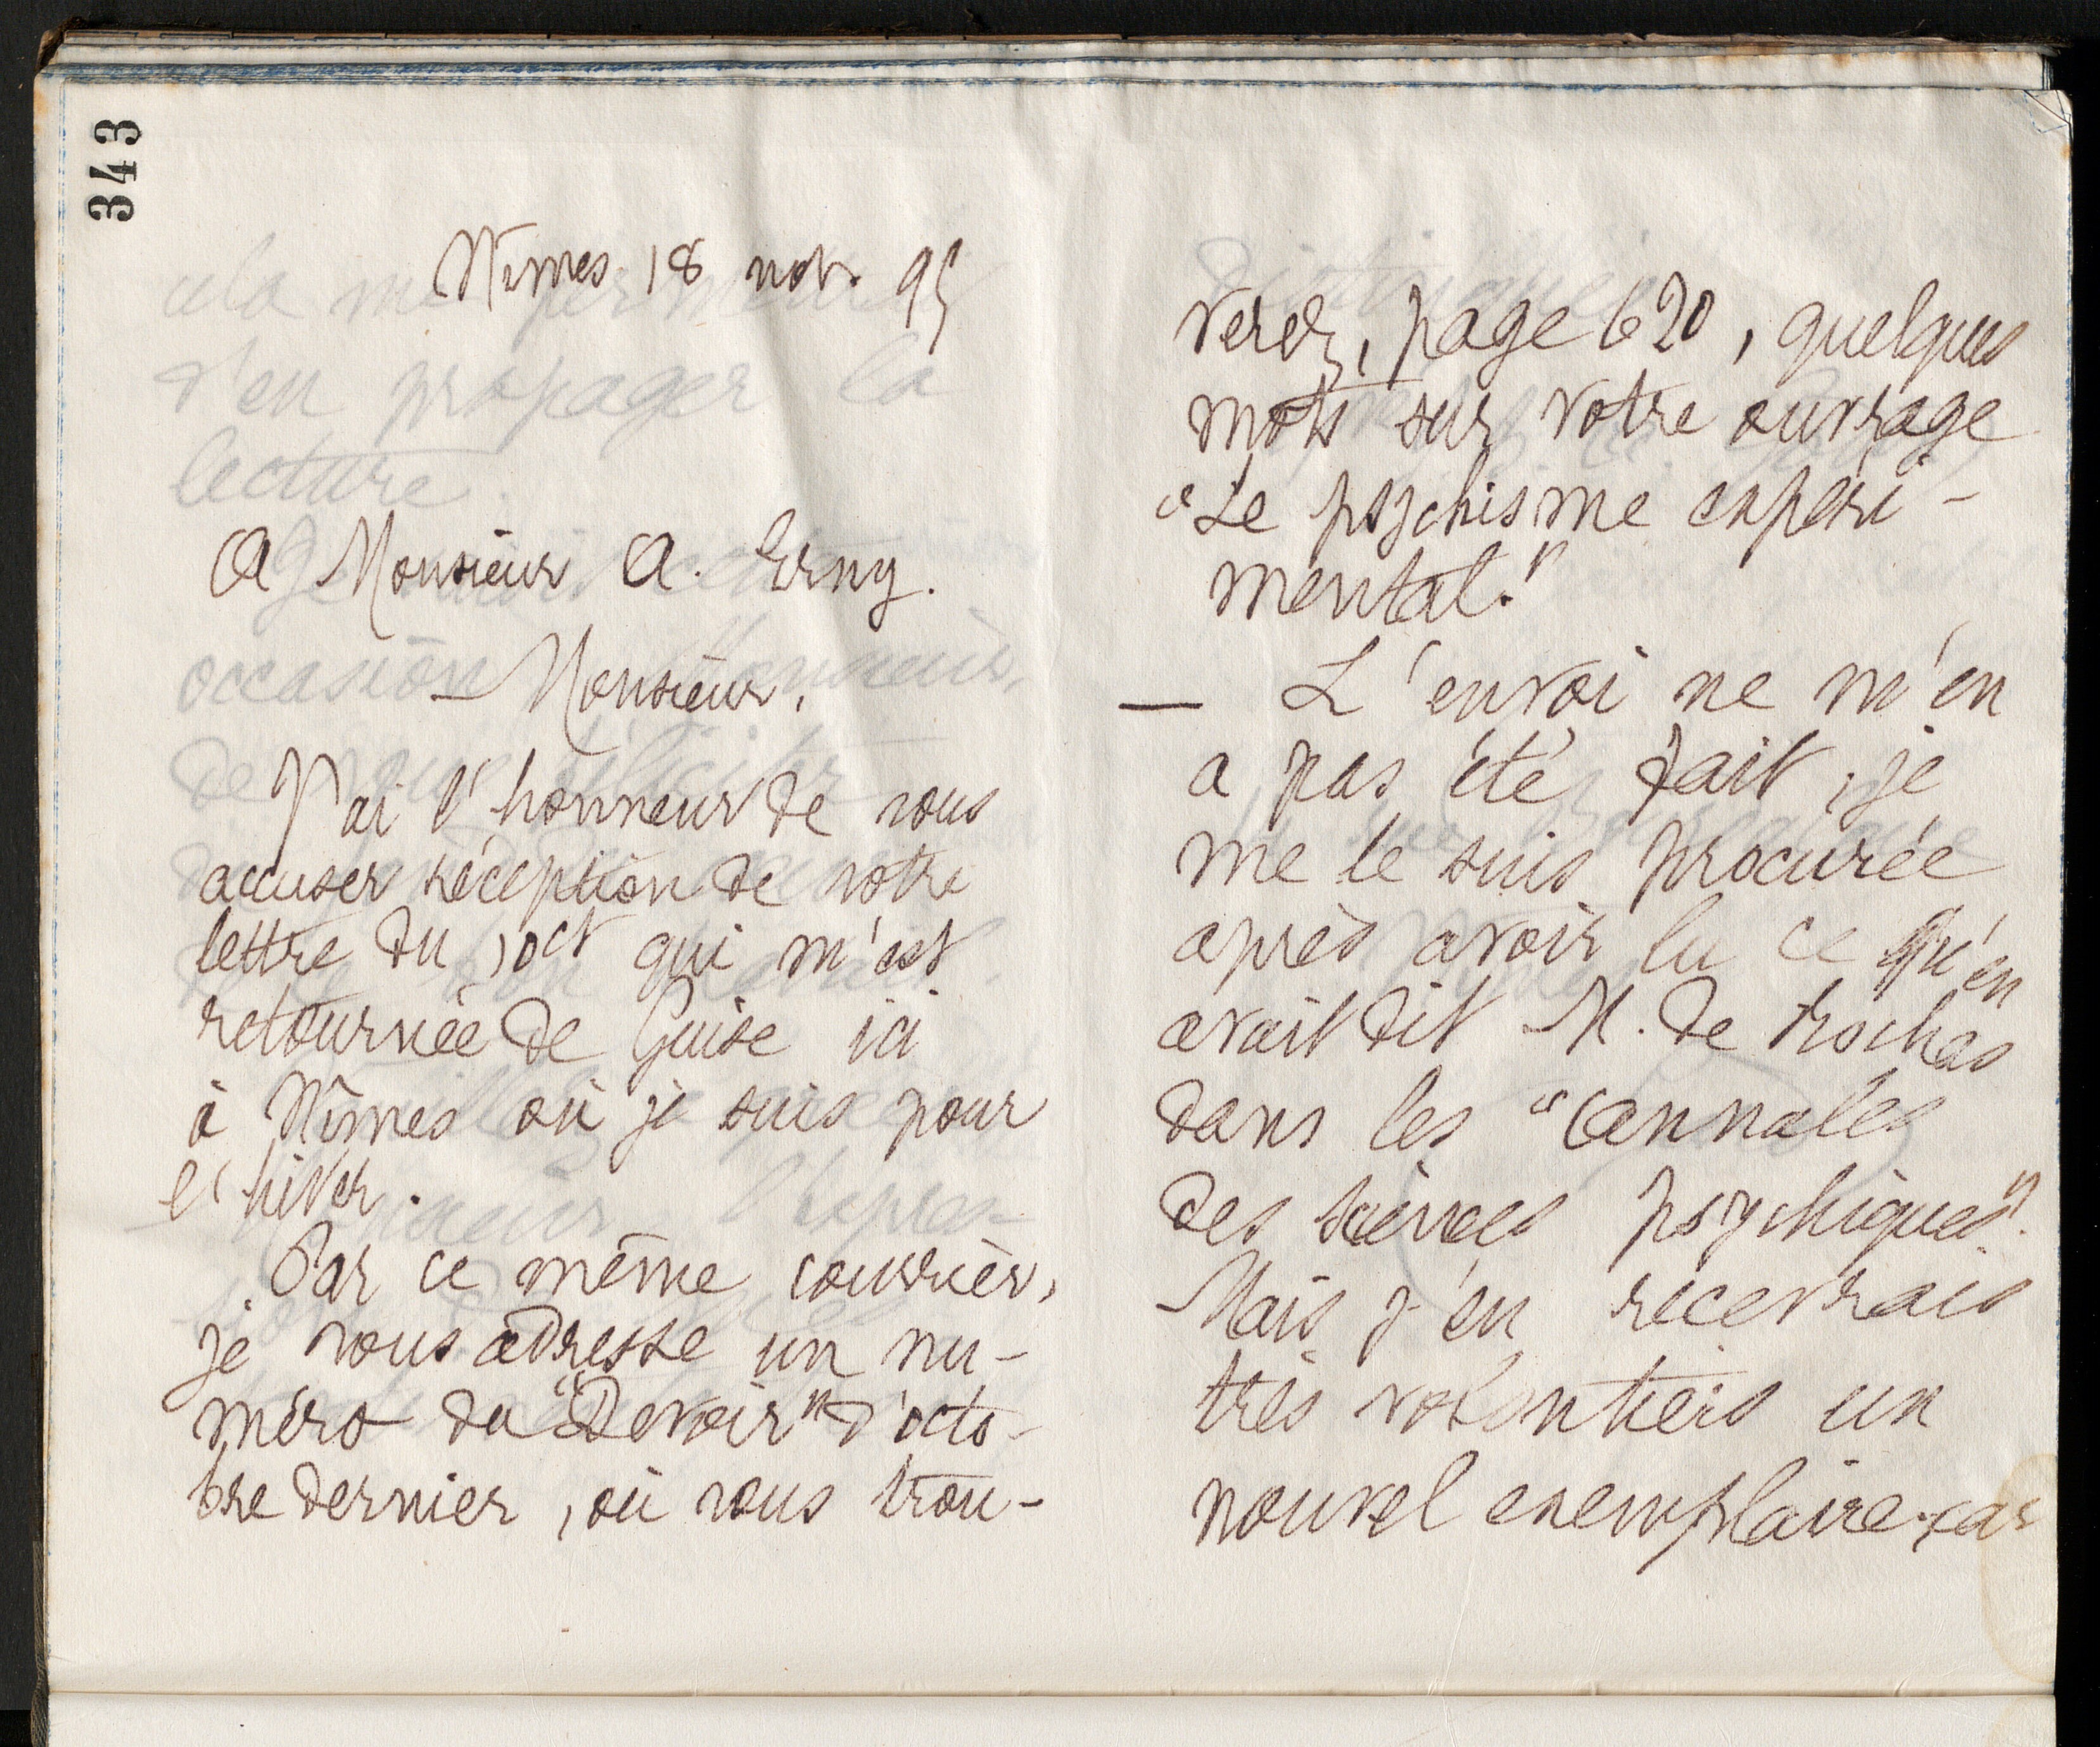 343
Nîmes 18 nov. 95
A Monsieur A. Erny.
Monsieur,
J'ai l'honneur de vous
accuser réception de votre
lettre du 1 oct qui m'est
retournée de Guise ici
à Nîmes où je suis pour
l'hiver.
Par ce même courrier,
je vous adresse un nu-
méro du "Devoir" d'octo-
bre dernier, où vous trou-
verez, page 620, quelques
mots sur votre ouvrage
"Le psychisme expéri-
mental."
— L'envoi ne m'en
a pas été fait, je
me le suis procurée
après avoir lu ce qu'en
avait dit M. de Rochas
dans les "Annales
des sciences psychiques".
Mais j'en recevrais
très volontiers un
nouvel exemplaire car